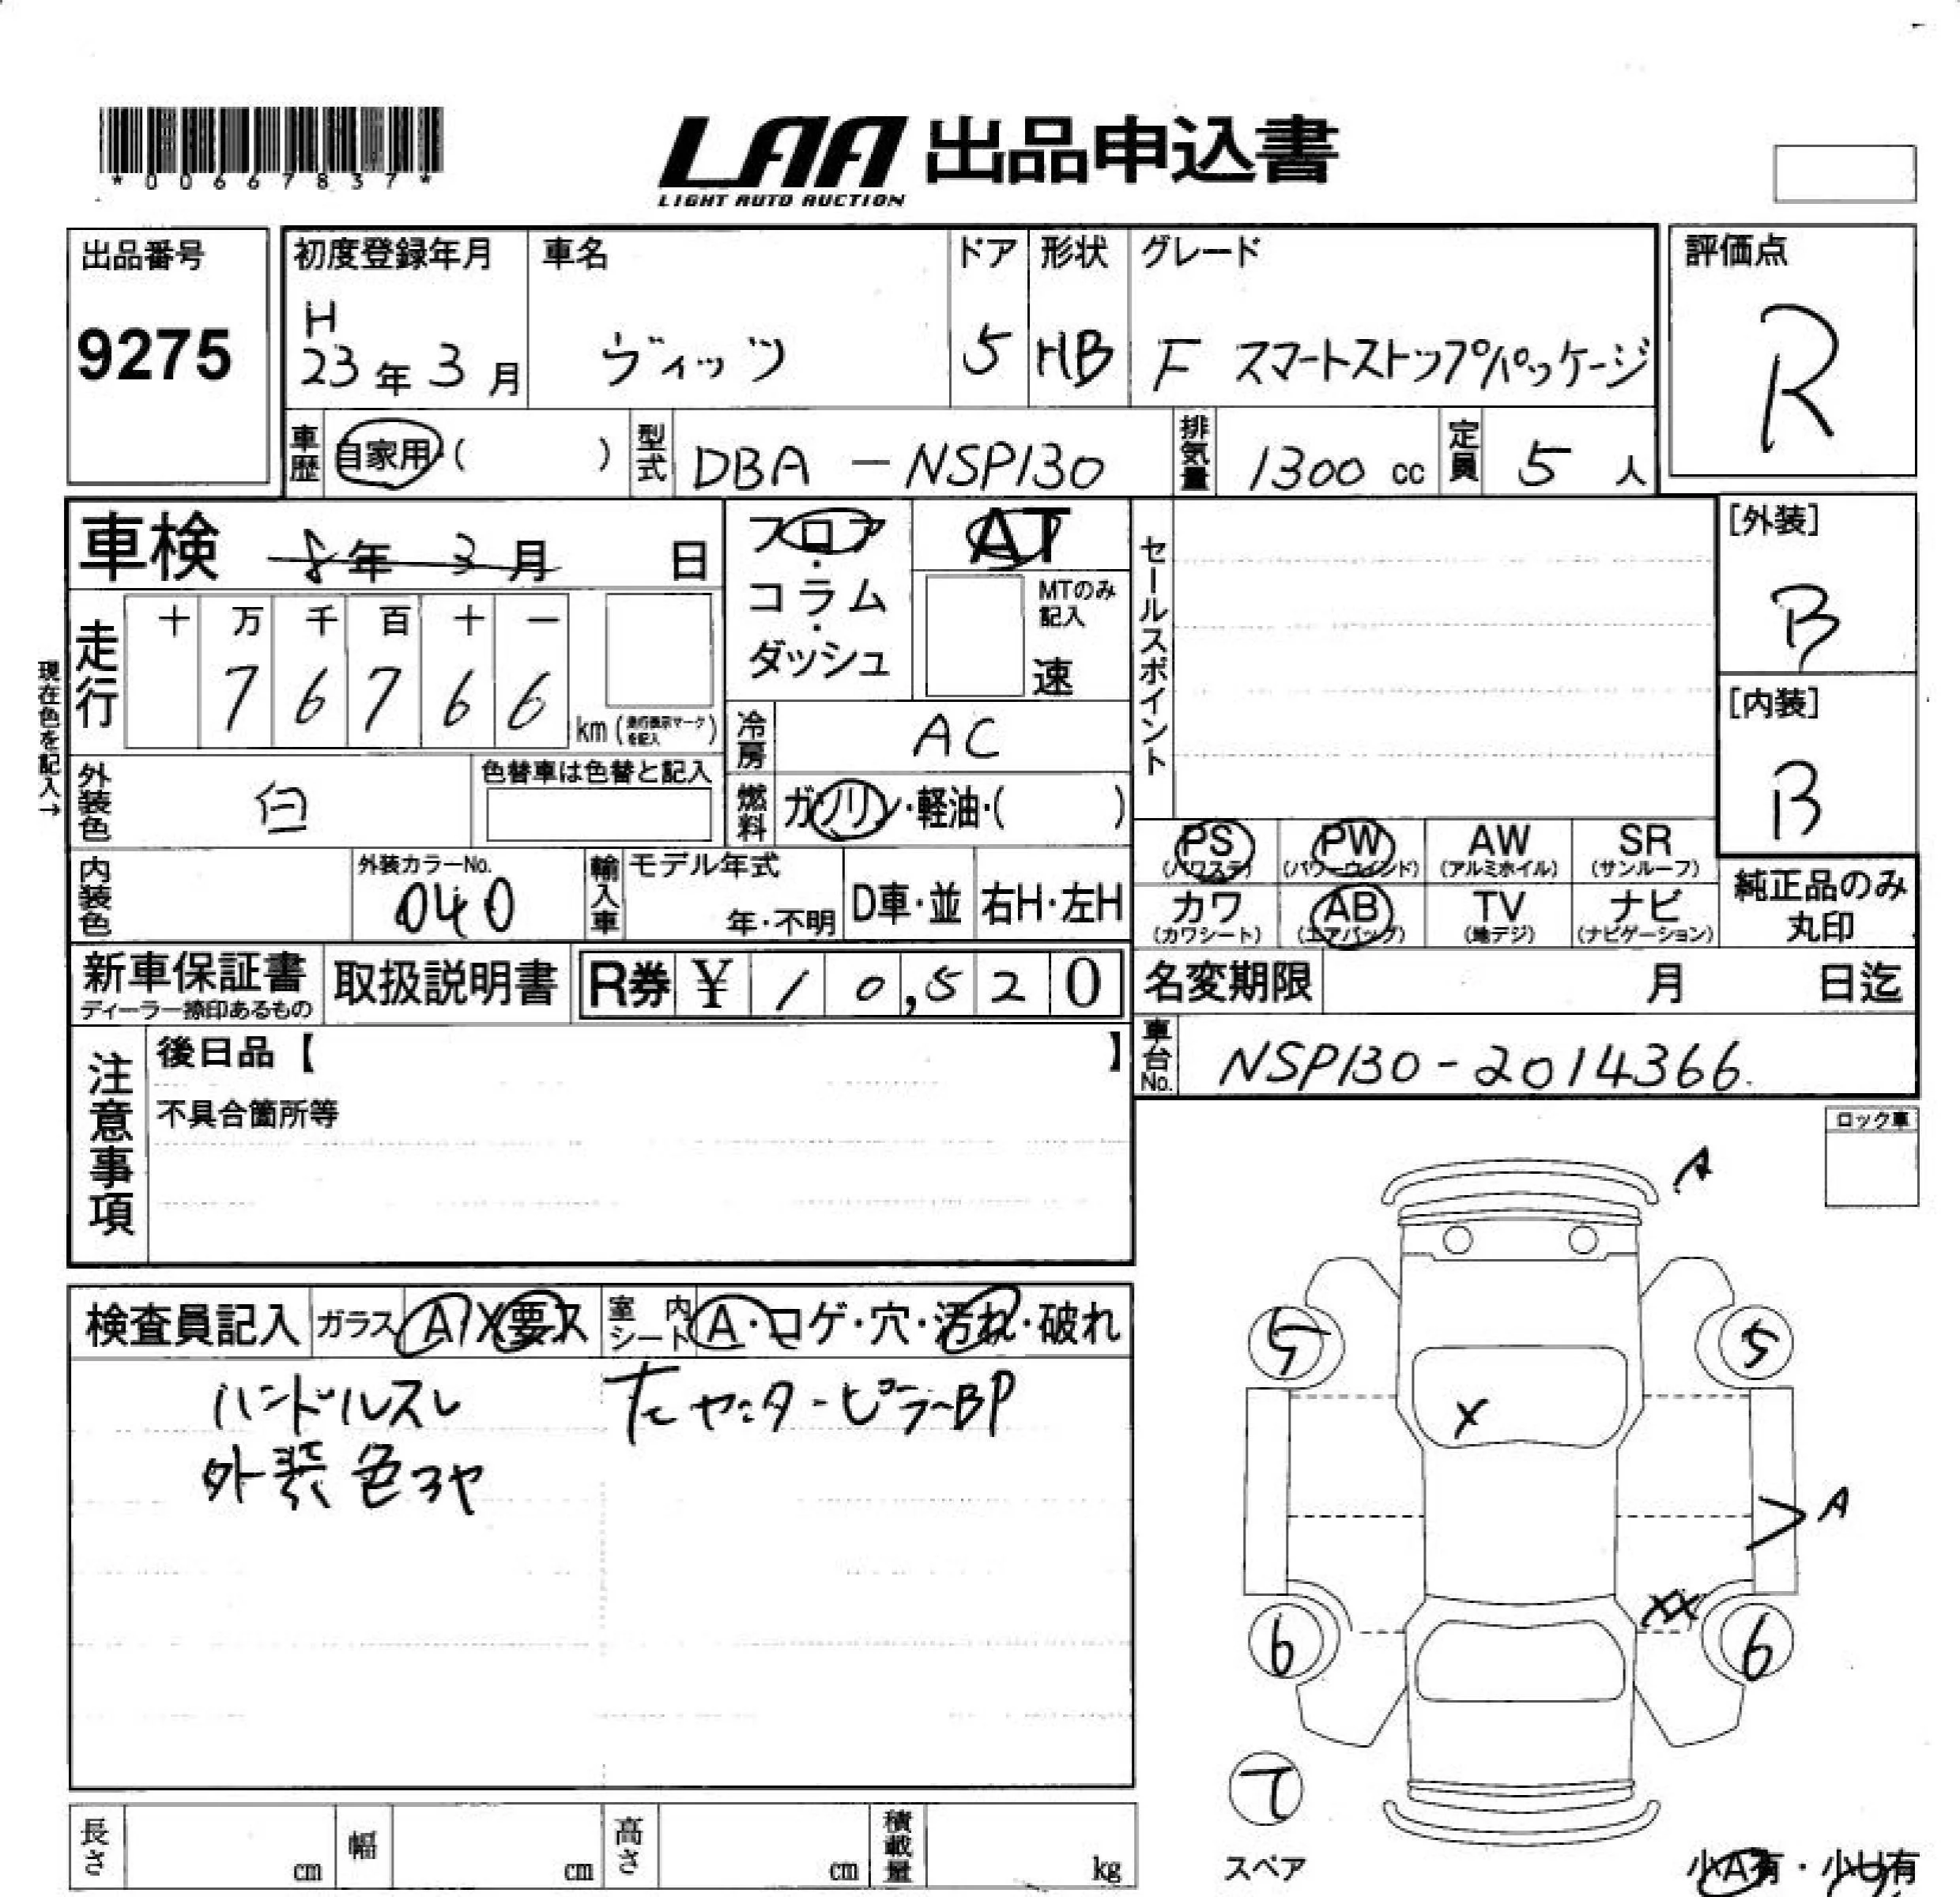 *00667837*
LAA 出品申込書
LIGHT AUTO AUCTION
出品番号
9275
初度登録年月
H
23年3月
車名
ヴィッツ
ドア
5
形状
HB
グレード
F スマートストップパッケージ
評価点
R
車歴 自家用・( )
型式 DBA-NSP130
排気量 1300cc
定員 5人
車検 8年3月 日
フロア・コラム・ダッシュ
AT
MTのみ記入
速
セールスポイント
[外装]
B
[内装]
B
現在色を記入→
走行
十 万 千 百 十 一
7 6 7 6 6
km(走行表示マークを記入)
冷房 AC
外装色 白
色替車は色替と記入
燃料 ガソリン・軽油・( )
PS
(パワステ)
PW
(パワーウィンド)
AW
(アルミホイル)
SR
(サンルーフ)
カワ
(カワシート)
AB
(エアバッグ)
TV
(地デジ)
ナビ
(ナビゲーション)
純正品のみ
丸印
内装色
外装カラーNo.
040
輸入車
モデル年式
年・不明
D車・並
右H・左H
新車保証書
ディーラー捺印あるもの
取扱説明書
R券 ¥ 10,520
名変期限 月 日迄
車台No. NSP130-2014366
注意事項
後日品【 】
不具合箇所等
ロック車
検査員記入
ガラス A / X 要ス
室内シート A・コゲ・穴・汚れ・破れ
ハンドルスレ
左センターピラーBP
外装色ヨヤ
A
5
5
X
A
XX
6
6
T
スペア
長さ cm
幅 cm
高さ cm
積載量 kg
小A有・小U有